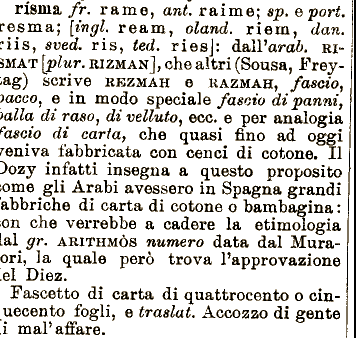 risma fr. rame, ant. raime; sp. e port.
resma; [ingl. ream, oland. riem, dan.
riis, sved. ris, ted. ries]: dall'arab. RI-
SMAT [plur. RIZMAN], che altri (Sousa, Frey-
tag) scrive REZMAH e RAZMAH, fascio,
pacco, e in modo speciale fascio di panni,
balla di raso, di velluto, ecc. e per analogia
fascio di carta, che quasi fino ad oggi
veniva fabbricata con cenci di cotone. Il
Dozy infatti insegna a questo proposito
come gli Arabi avessero in Spagna grandi
fabbriche di carta di cotone o bambagina:
con che verrebbe a cadere la etimologia
dal gr. ARITHMÒS numero data dal Mura-
tori, la quale però trova l'approvazione
del Diez.
Fascetto di carta di quattrocento o cin-
quecento fogli, e traslat. Accozzo di gente
di mal'affare.